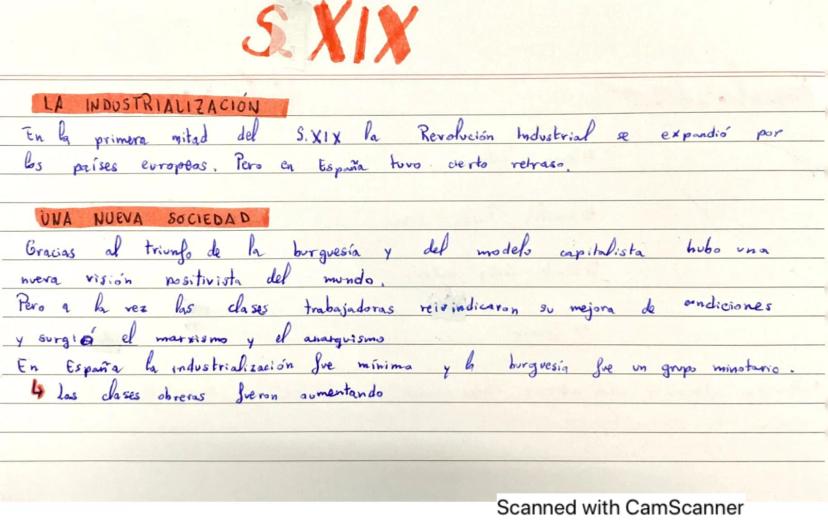 S. XIX
LA INDUSTRIALIZACIÓN
En la primera mitad del S.XIX la Revolución Industrial se expandió por
los países europeos. Pero en España tuvo cierto retraso.
UNA NUEVA SOCIEDAD
Gracias al triunfo de la burguesía y del modelo capitalista hubo una
nueva visión positivista del mundo.
Pero a la vez las clases trabajadoras reivindicaron su mejora de condiciones
y surgió el marxismo y el anarquismo
En España la industrialización fue mínima y la burguesía fue un grupo minotario.
↳ Las clases obreras fueron aumentando
Scanned with CamScanner